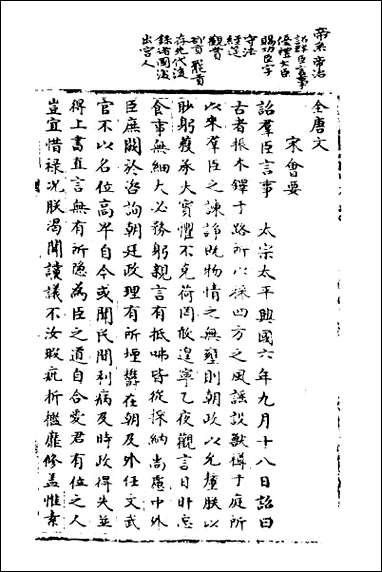 帝系 帝治
詔群臣言事
優禮大臣
賜功臣字
守法
經筵
觀賞
卻貢 罷貢
存先代後
錄諸國後
出宮人
全唐文
宋會要
詔羣臣言事 太宗太平興國六年九月十八日詔曰
古者振木鐸于路所以採四方之風謠設獸樽于庭所
以來羣臣之諫諍既物情之無壅則朝政以允釐朕以
眇躬獲承大寶懼不克荷罔敢遑寧乙夜觀言日旰忘
食事無細大必務躬親言有抵咈皆從採納尚慮中外
臣庶闕於咨詢朝廷政理有所堙鬱在朝及外任文武
官不以名位高卑自今或聞民間利病及時政得失並
得上書直言無有所隱為臣之道自合愛君有位之人
豈宜惜祿况朕渴聞讜議不汝瑕疵折檻靡修盖惟素